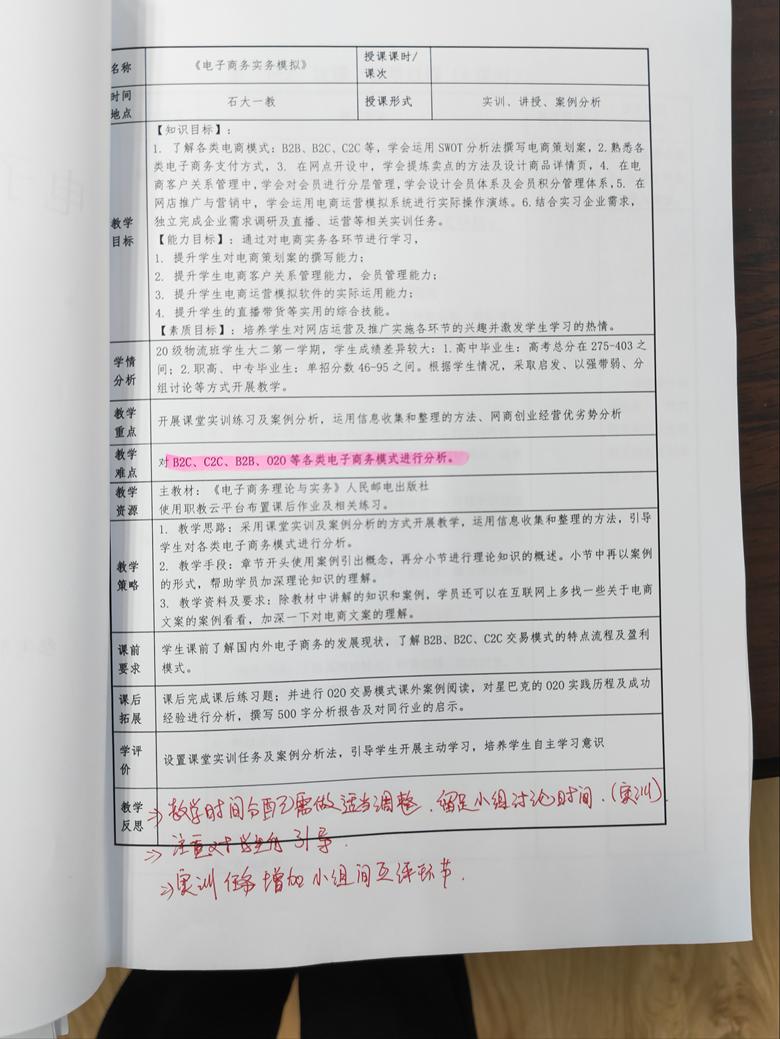 名称 《电子商务实务模拟》 授课课时/课次
时间地点 石大一教 授课形式 实训、讲授、案例分析
教学目标
【知识目标】:
1. 了解各类电商模式:B2B、B2C、C2C 等,学会运用 SWOT 分析法撰写电商策划案,2.熟悉各
类电子商务支付方式,3. 在网点开设中,学会提炼卖点的方法及设计商品详情页,4. 在电
商客户关系管理中,学会对会员进行分层管理,学会设计会员体系及会员积分管理体系,5. 在
网店推广与营销中,学会运用电商运营模拟系统进行实际操作演练。6.结合实习企业需求,
独立完成企业需求调研及直播、运营等相关实训任务。
【能力目标】:通过对电商实务各环节进行学习,
1. 提升学生对电商策划案的撰写能力;
2. 提升学生电商客户关系管理能力,会员管理能力;
3. 提升学生电商运营模拟软件的实际运用能力;
4. 提升学生的直播带货等实用的综合技能。
【素质目标】:培养学生对网店运营及推广实施各环节的兴趣并激发学生学习的热情。
学情分析
20 级物流班学生大二第一学期,学生成绩差异较大:1.高中毕业生:高考总分在 275-403 之
间;2.职高、中专毕业生:单招分数 46-95 之间。根据学生情况,采取启发、以强带弱、分
组讨论等方式开展教学。
教学重点 开展课堂实训练习及案例分析,运用信息收集和整理的方法、网商创业经营优劣势分析
教学难点 对 B2C、C2C、B2B、O2O 等各类电子商务模式进行分析。
教学资源
主教材:《电子商务理论与实务》人民邮电出版社
使用职教云平台布置课后作业及相关练习。
教学策略
1. 教学思路:采用课堂实训及案例分析的方式开展教学,运用信息收集和整理的方法,引导
学生对各类电子商务模式进行分析。
2. 教学手段:章节开头使用案例引出概念,再分小节进行理论知识的概述。小节中再以案例
的形式,帮助学员加深理论知识的理解。
3. 教学资料及要求:除教材中讲解的知识和案例,学员还可以在互联网上多找一些关于电商
文案的案例看看,加深一下对电商文案的理解。
课前要求
学生课前了解国内外电子商务的发展现状,了解 B2B、B2C、C2C 交易模式的特点流程及盈利
模式。
课后拓展
课后完成课后练习题;并进行 O2O 交易模式课外案例阅读,对星巴克的 O2O 实践历程及成功
经验进行分析,撰写 500 字分析报告及对同行业的启示。
学评价 设置课堂实训任务及案例分析法,引导学生开展主动学习,培养学生自主学习意识
教学反思
⇒教学时间分配需做适当调整,留足小组讨论时间.(实训)
⇒注重对学生的引导.
⇒实训任务增加小组间互评环节.